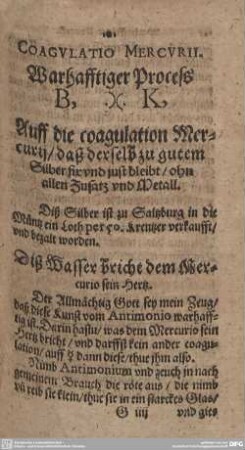 COAGVLATIO MERCVRII.
Warhafftiger Process
B. X. K.
Auff die coagulation Mer-
curij / daß derselb zu gutem
Silber fix vnd just bleibt / ohn
allen Zusatz vnd Metall.
Diß Silber ist zu Saltzburg in die
Müntz ein Loth per 50. Kreutzer verkaufft /
vnd bezalt worden.
Diß Wasser briche dem Mer-
curio sein Hertz.
Der Allmächtig Gott sey mein Zeug /
daß diese Kunst vom Antimonio warhaff-
tig ist. Darin hastu / was dem Mercurio sein
Hertz bricht / vnd darffst kein ander coagu-
lation / auff dann diese / thue ihm also.
Nimb Antimonium vnd zeuch in nach
gemeinem Brauch die röte aus / die nimb
vñ reib sie klein / thue sie in ein starckes Glas /
G iiij vnd gies